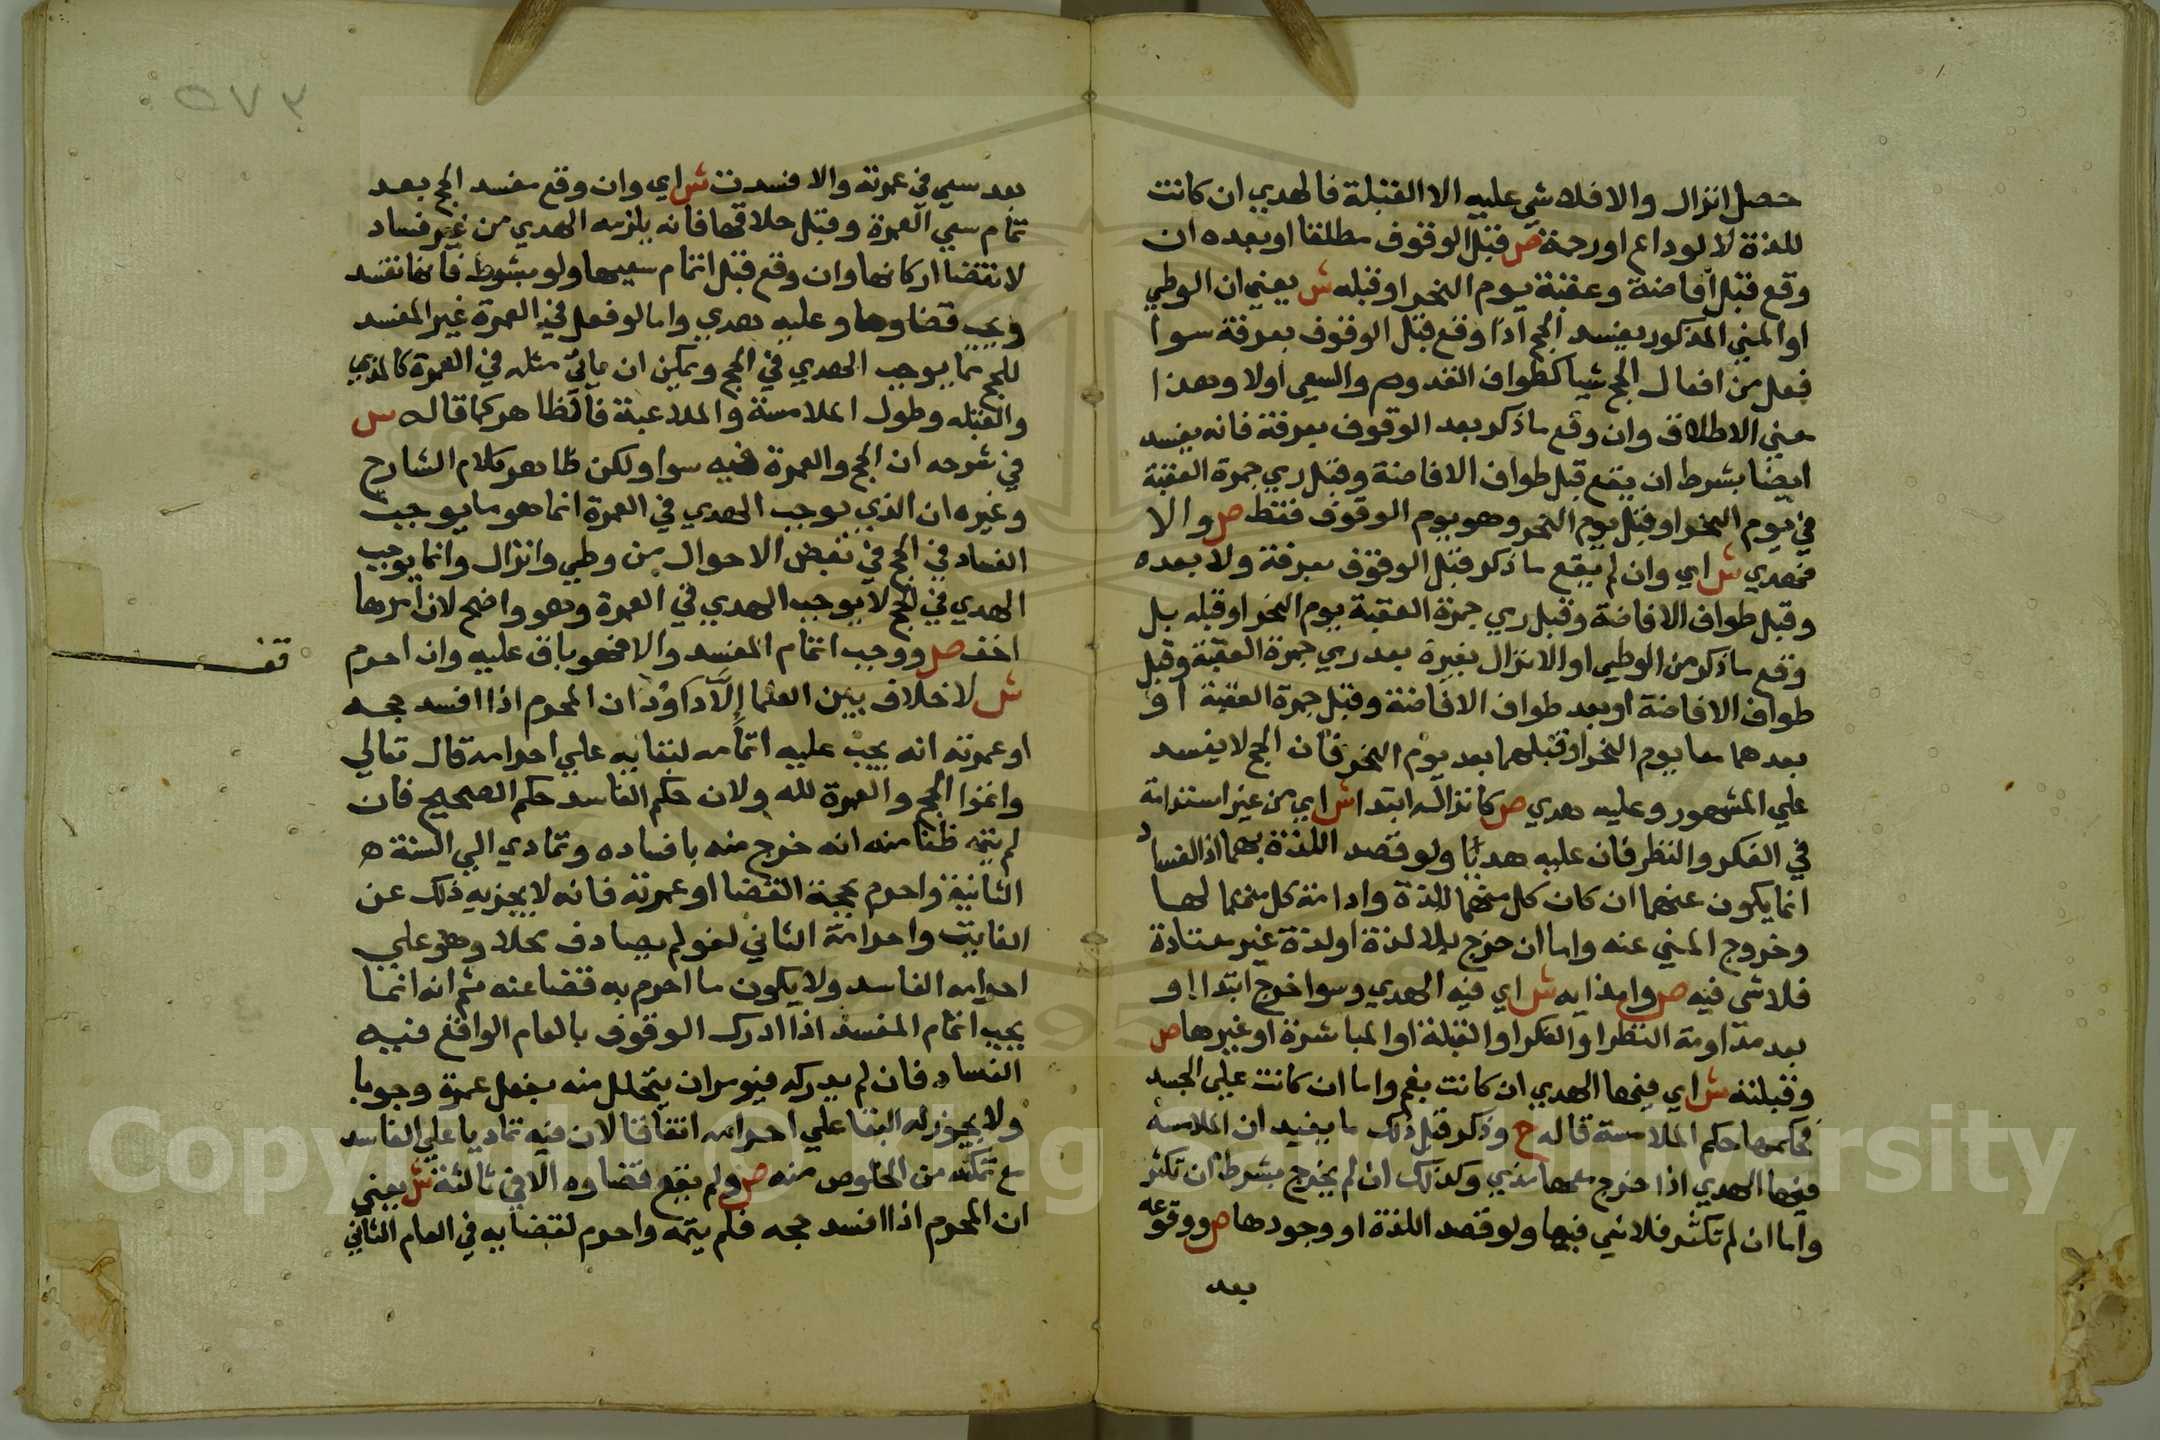 حصل انزال والا فلا شي عليه الا القبلة فالهدي ان كانت
للذة لا لوداع او رحمة ص قبل الوقوف مطلقا او بعده ان
وقع قبل افاضة وعقبة يوم النحر او قبله ش يعني ان الوطي
او المني المذكور يفسد الحج اذا وقع قبل الوقوف بعرفة سوا
فعل من افعال الحج شيا كطواف القدوم والسعي اولا وهذا
معني الاطلاق وان وقع ما ذكر بعد الوقوف بعرفة فانه يفسد
ايضا بشرط ان يقع قبل طواف الافاضة وقبل رمي جمرة العقبة
في يوم النحر او قبل يوم النحر وهو يوم الوقوف فقط ص والا
فهدي ش اي وان لم يقع ما ذكر قبل الوقوف بعرفة ولا بعده
وقبل طواف الافاضة وقبل رمي جمرة العقبة يوم النحر او قبله بل
وقع ما ذكر من الوطي او الانزال بغيره بعد رمي جمرة العقبة وقبل
طواف الافاضة او بعد طواف الافاضة وقبل جمرة العقبة او
بعدهما معا يوم النحر او قبلهما بعد يوم النحر فان الحج لا يفسد
علي المشهور وعليه هدي ص كانزاله ابتدا ش اي من غير استدامة
في الفكر والنظر فان عليه هديا ولو قصد اللذة بهما اذ الفساد
انما يكون عنهما ان كان كل منهما للذة وادامة كل منهما لها
وخروج المني عنه واما ان خرج بلا لذة او لذة غير معتادة
فلا شي فيه ص وامذايه ش اي فيه الهدي وسوا خرج ابتدا او
بعد مداومة النظر او الفكر او القبلة او المباشرة او غيرها ص
وقبلته ش اي فيها الهدي ان كانت بفم واما ان كانت علي الجسد
فحكمها حكم الملامسة قاله ح وذكر قبل ذلك ما يفيد ان الملامسة
فيها الهدي اذا خرج معها مذي وكذلك ان لم يخرج بشرط ان تكثر
واما ان لم تكثر فلا شي فيها ولو قصد اللذة او وجودها ص ووقوعه
بعد
٥٧٣
بعد سعي في عمرته والا فسدت ش اي وان وقع مفسد الحج بعد
تمام سعي العمرة وقبل حلاقها فانه يلزمه الهدي من غير فساد
لانقضا اركانها وان وقع قبل اتمام سعيها ولو بشوط فانها تفسد
ويجب قضاوها وعليه هدي واما لو فعل في العمرة غير المفسد
للحج مما يوجب الهدي في الحج ويمكن ان ياتي مثله في العمرة كالمذي
والقبله وطول الملامسة والملاعبة فالظاهر كما قاله س
في شرحه ان الحج والعمرة فيه سوا ولكن ظاهر كلام الشارح
وغيره ان الذي يوجب الهدي في العمرة انما هو ما يوجب
الفساد في الحج في بعض الاحوال من وطي وانزال وانما يوجب
الهدي في الحج لا يوجب الهدي في العمرة وهو واضح لان امرها
اخف ص ووجب اتمام المفسد والا فهو باق عليه وان احرم
قف
ش لا خلاف بين العلما إلا داود ان المحرم اذا افسد حجه
او عمرته انه يجب عليه اتمامه لبقايه علي احرامه قال تعالي
واتموا الحج والعمرة لله ولان حكم الفاسد حكم الصحيح فان
لم يتمه ظنا منه انه خرج منه بافساده وتمادي الي السنة
الثانية واحرم بحجة القضا او عمرته فانه لا يجزيه ذلك عن
الفايت واحرامه الثاني لغو لم يصادف محلا وهو علي
احرامه الفاسد ولا يكون ما احرم به قضا عنه ثم انه انما
يجب اتمام المفسد اذا ادرك الوقوف بالعام الواقع فيه
الفساد فان لم يدركه فيومر ان يتحلل منه بفعل عمرة وجوبا
ولا يجوز له البقا علي احرامه اتفاقا لان فيه تماديا علي الفاسد
مع تمكنه من الخلوص منه ص ولم يقع قضاوه الا في ثالثة ش يعني
ان المحرم اذا افسد حجه فلم يتمه واحرم لقضايه في العام الثاني
Copyright © King Saud University
1957